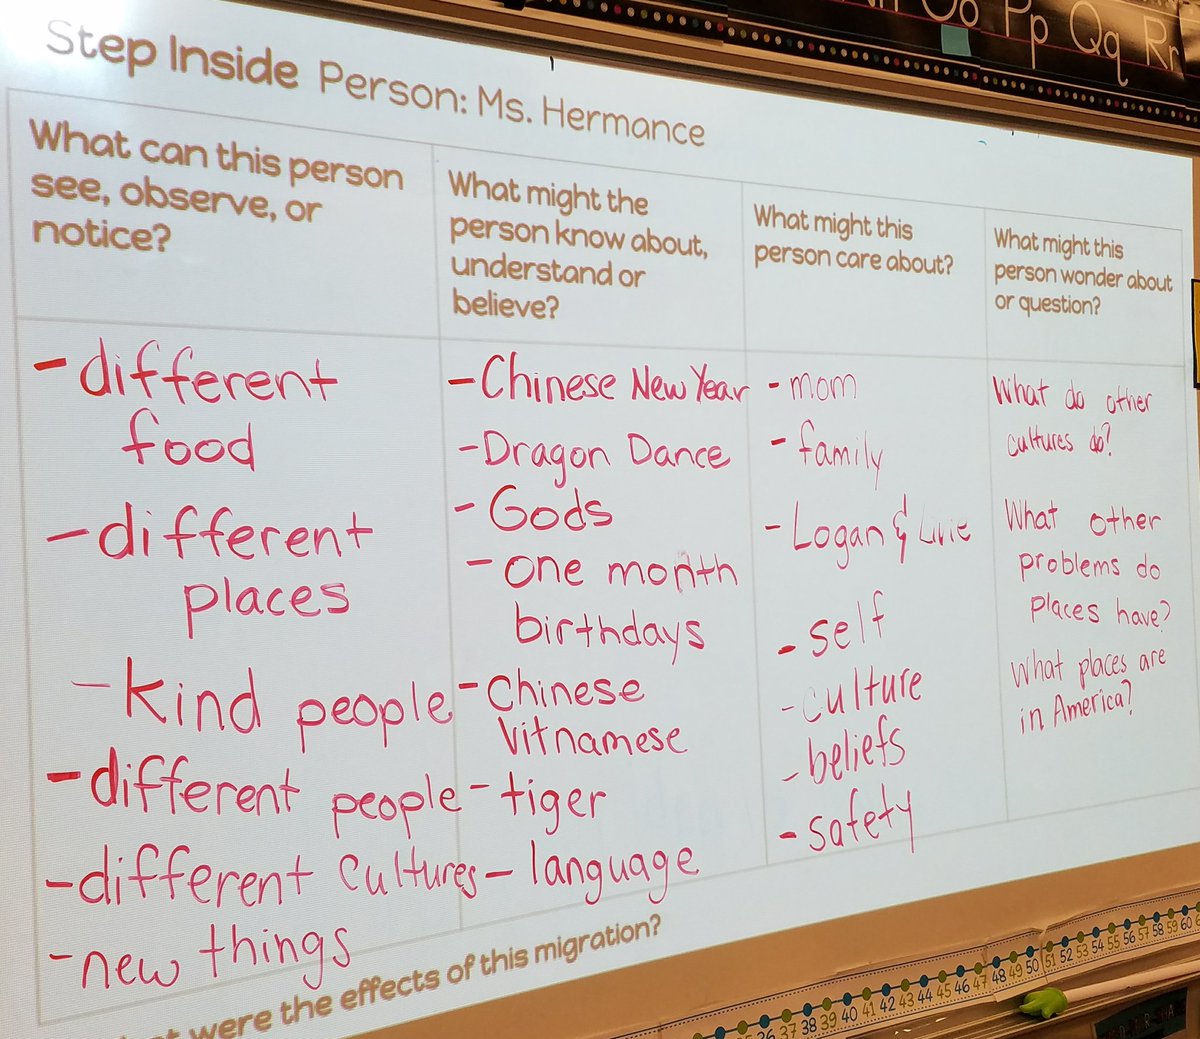 Oo Pp Qq Rr
Step Inside Person: Ms. Hermance
What can this person
see, observe, or
notice?
- different
food
- different
places
- kind people
- different people
- different cultures
- new things
What might the
person know about,
understand or
believe?
- Chinese New Year
- Dragon Dance
- Gods
- one month
birthdays
- Chinese
Vitnamese
- tiger
- language
What might this
person care about?
- mom
- family
- Logan & Livie
- self
- culture
- beliefs
- safety
What might this
person wonder about
or question?
What do other
cultures do?
What other
problems do
places have?
What places are
in America?
were the effects of this migration?
36 37 38 39 40 41 42 43 44 45 46 47 48 49 50 51 52 53 54 55 56 57 58 59 60